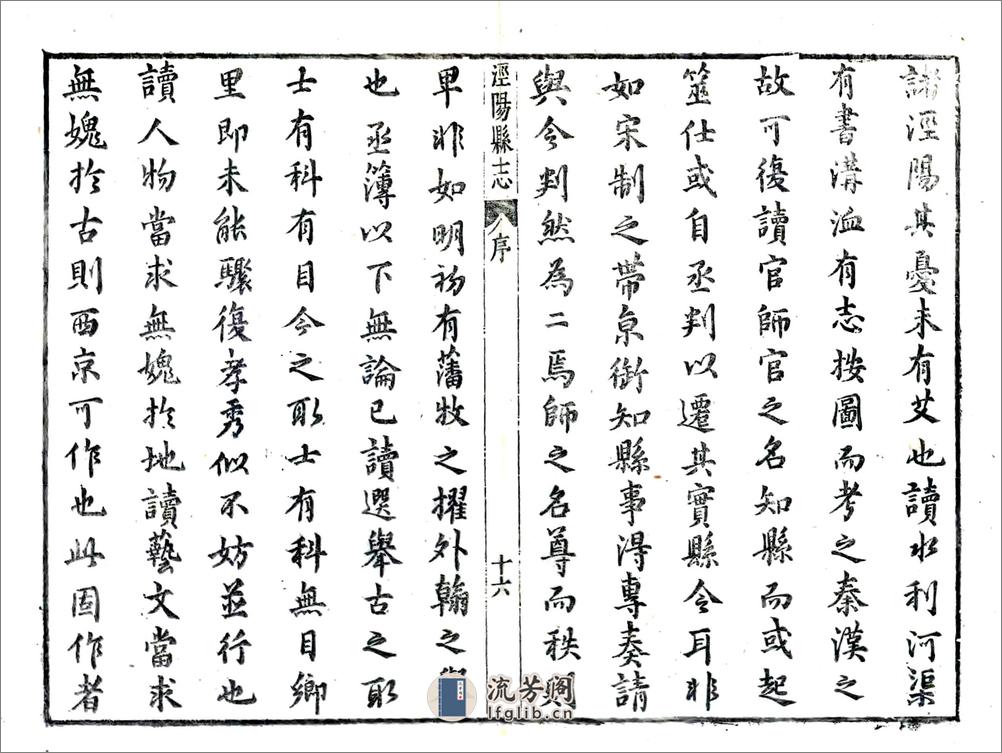 諸涇陽其憂未有艾也讀水利河渠
有書溝洫有志按圖而考之秦漢之
故可復讀官師官之名知縣而或起
筮仕或自丞判以遷其實縣令耳非
如宋制之帶京銜知縣事得專奏請
與今判然為二焉師之名尊而秩
涇陽縣志
序
十六
卑非如明初有藩牧之擢外翰之
也丞簿以下無論已讀選舉古之取
士有科有目今之取士有科無目鄉
里即未能驟復孝秀似不妨並行也
讀人物當求無媿於地讀藝文當求
無媿於古則西京可作也此固作者
流芳阁
lfglib.cn